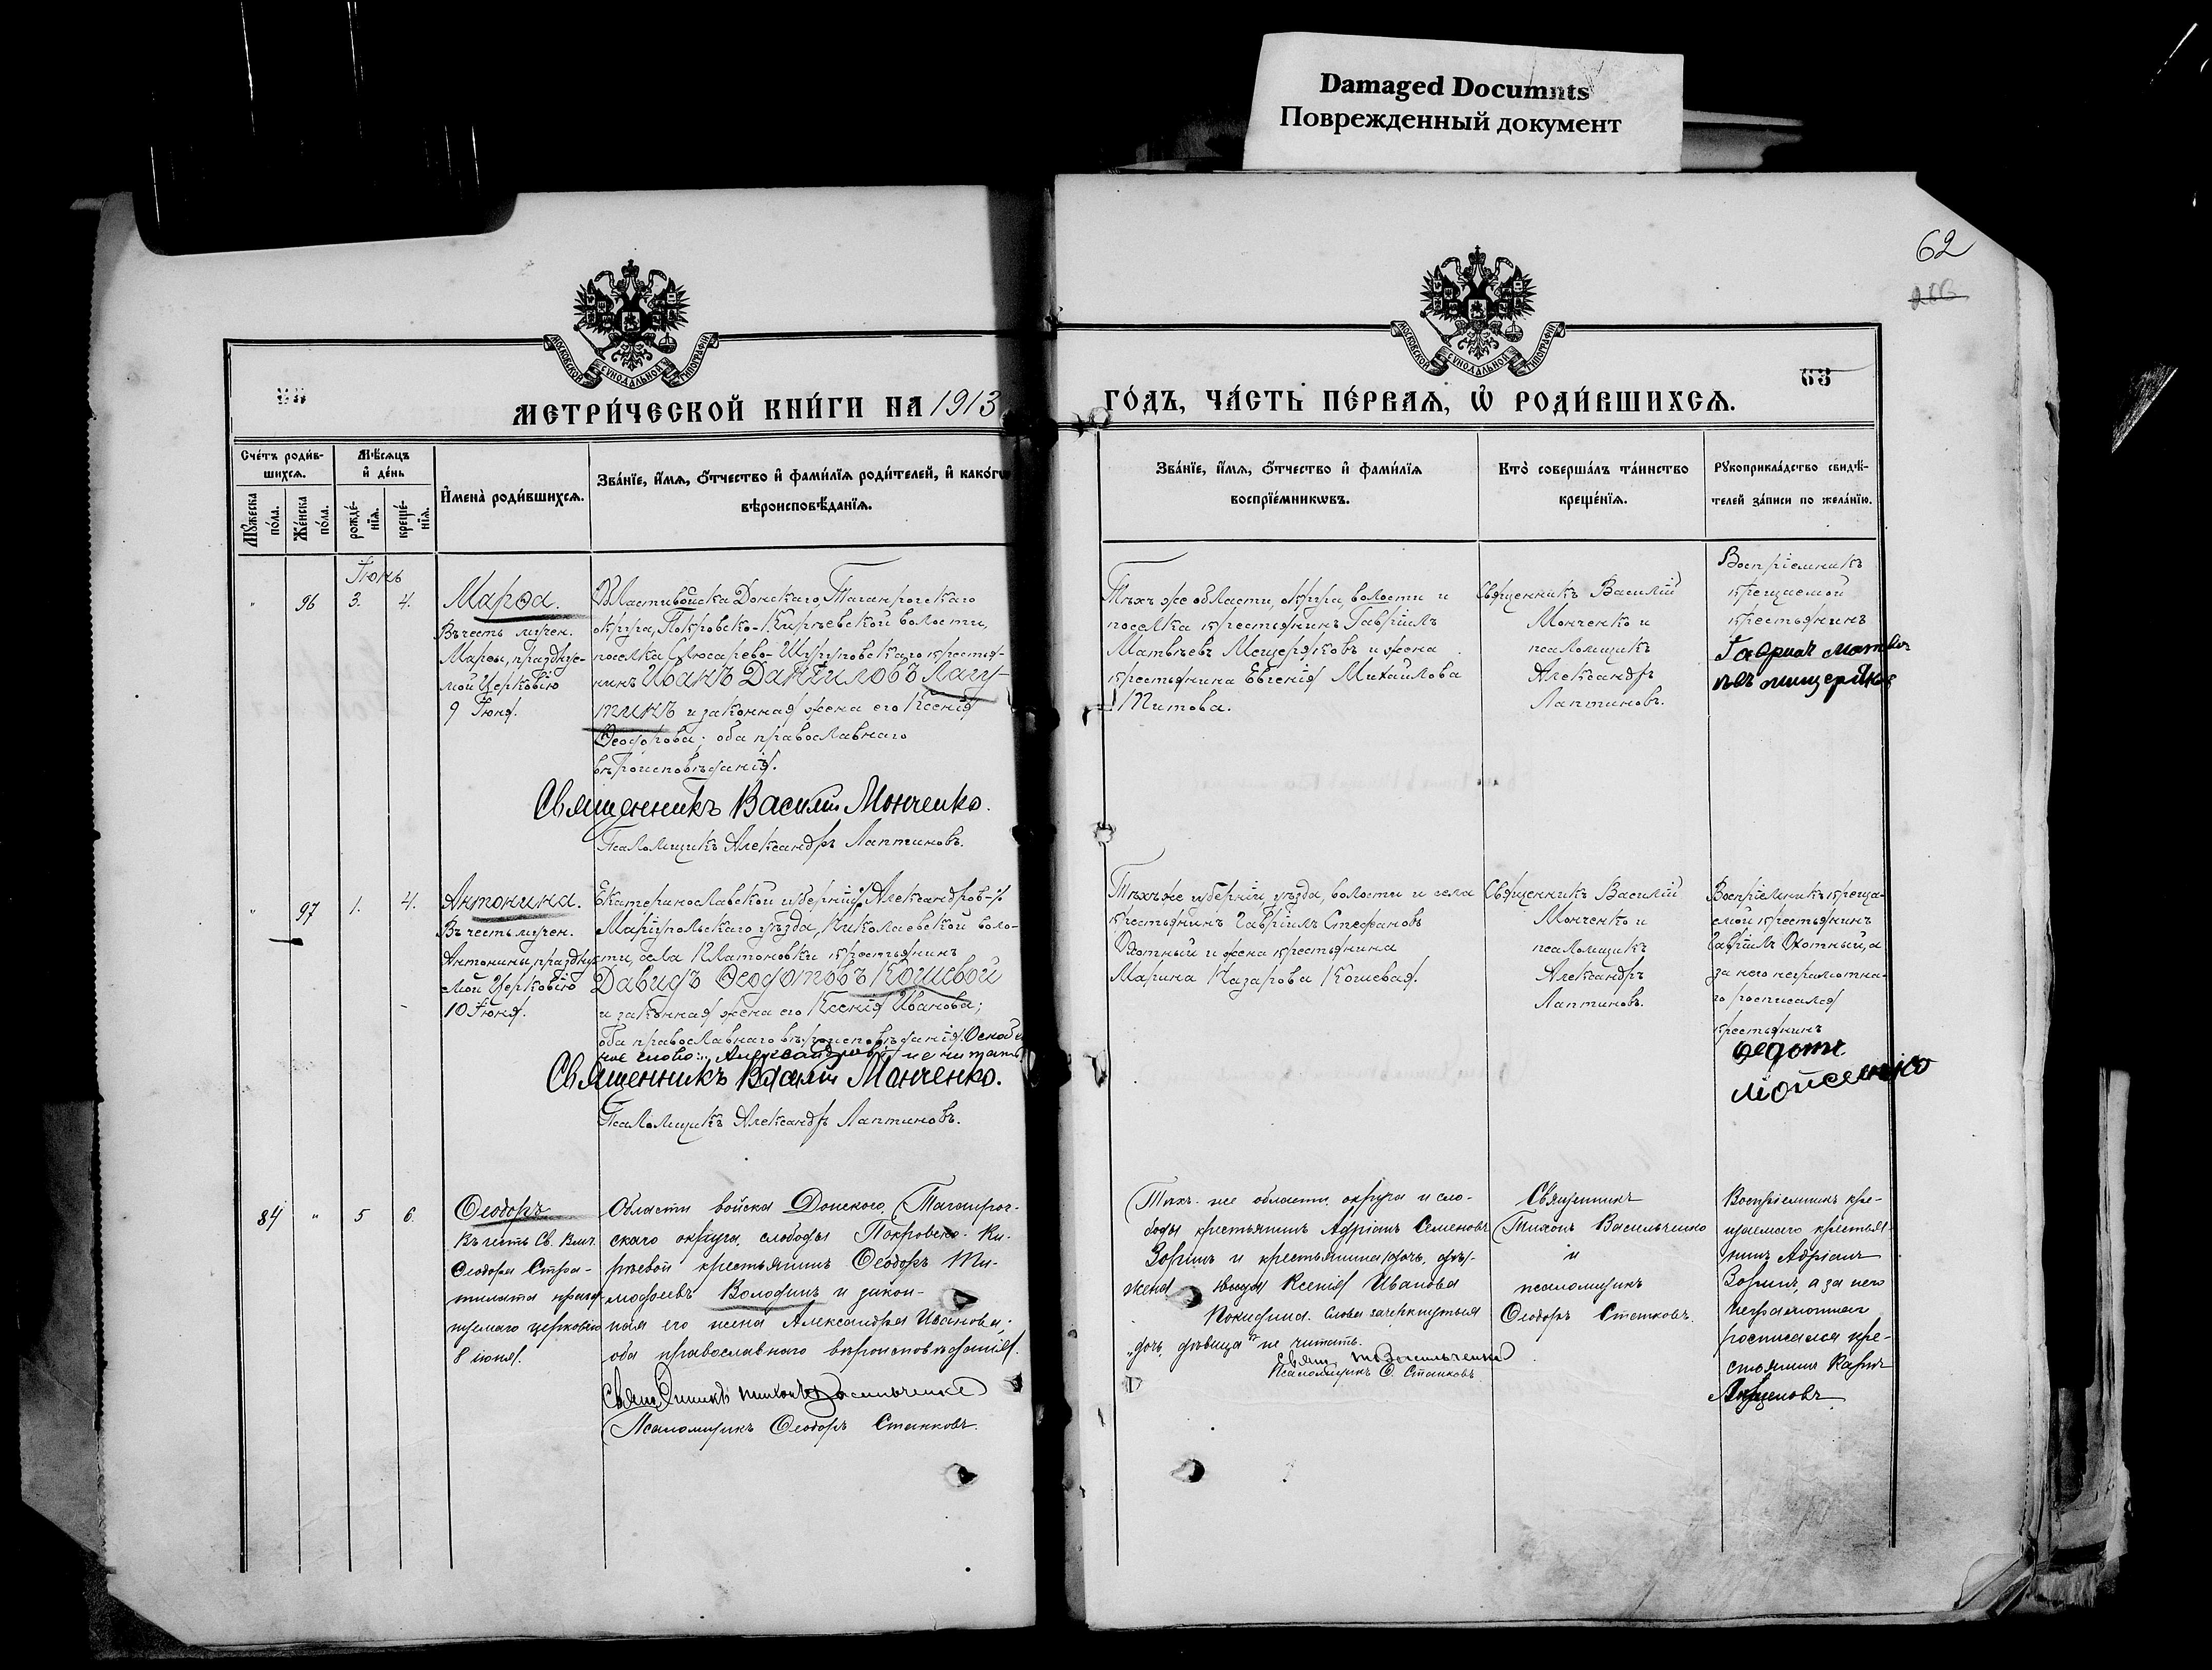 Damaged Documnts
Поврежденный документ
62
МОСКОВСКОЙ СѴНОДАЛЬНОЙ ТИПОГРАФІИ
МОСКОВСКОЙ СѴНОДАЛЬНОЙ ТИПОГРАФІИ
63
МЕТРИ́ЧЕСКОЙ КНИ́ГИ НА 1913
ГО́ДЪ, ЧА́СТЬ ПЕ́РВАѦ, Ѡ҆ РОДИ́ВШИХСѦ.
Сче́тъ роди́в-
шихсѧ.
Мѣ́сѧцъ
и҆ де́нь
Мꙋ́жеска
по́ла.
Же́нска
по́ла.
рожде́-
нїѧ.
креще́-
нїѧ.
И҆мена̀ роди́вшихсѧ.
Зва́нїе, и҆́мѧ, ѻ҆́тчество и҆ фами́лїѧ роди́телей, и҆ како́гѡ
вѣроисповѣ́данїѧ.
Зва́нїе, и҆́мѧ, ѻ҆́тчество и҆ фами́лїѧ
воспрїе́мникѡвъ.
Кто̀ соверша́лъ та́инство
креще́нїѧ.
Рꙋкоприкла́дство свидѣ́-
телей за́писи по жела́нїю.
Іюнь
" 96 3. 4.
Марѳа.
Въ честь мучен.
Марѳы, праздну-
мой Церковію
9 Іюня.
Области войска Донскаго, Таганрогскаго
округа, Покровско-Киреевской волости,
поселка Слюсарево-Шуруповскаго крестья-
нинъ Иванъ Даніиловъ Лагу-
тинъ и законная жена его Ксенія
Ѳеодорова; оба православнаго
вѣроисповѣданія.
Священникъ Василій Мончепко.
Псаломщикъ Александръ Лаптиновъ.
Тѣхъ же области, округа, волости и
поселка крестьянинъ Гавріилъ
Матвѣевъ Мещеряковъ и жена
крестьянина Евгенія Михаилова
Титова.
Священникъ Василій
Монченко и
псаломщикъ
Александръ
Лаптиновъ.
Воспріемникъ
крещаемой
крестьянинъ
Гавриилъ Матвѣ
" 97 1. 4.
Антонина.
Въ честь мучен.
Антонины, праздну
мой Церковію
10 Іюня.
Екатеринославской губерніи, Александров-
Маріупольскаго уѣзда, Николаевской воло-
сти, села Платоновки крестьянинъ
Давидъ Ѳеодотовъ Кошевой
и законная жена его Ксенія Иванова;
оба православнаго вѣроисповѣданія.
ное слово: "Александров" не читать
Священникъ Василій Монченко.
Псаломщикъ Александръ Лаптиновъ.
Тѣхъ же губерніи, уѣзда, волости и села
крестьянинъ Гавріилъ Стефановъ
Охотный и жена крестьянина
Марина Назарова Кошевая.
Священникъ Василій
Монченко и
псаломщикъ
Александръ
Лаптиновъ.
Воспріемникъ креща-
емой крестьянинъ
Гавріилъ Охотный, а
за него неграмотна-
го росписался
крестьянинъ
Федотъ
Мойсеенко
84 " 5 6.
Ѳеодоръ
Въ честь Св. Вмч.
Ѳеодора Стра-
тилата празд-
нуемаго церковію
8 іюня.
Области войска Донского, Таганрог-
скаго округа, слободы Покровско-Ки-
реевой крестьянинъ Ѳеодоръ Ти-
моѳеевъ Володинъ и закон-
ная его жена Александра Иванова;
оба православнаго вѣроисповѣданія.
Священникъ Тихонъ Васильченко
Псаломщикъ Ѳеодоръ Станковъ.
Тѣхъ же области, округа и сло-
боды крестьянинъ Адріанъ Семеновъ
Зоринъ и крестьянина дочь, дѣ-
жена Ксенія Иванова
Покидина. Слова зачеркнутыя
"дочь дѣвица" не читать.
Свящ. Т. Васильченко
Псаломщикъ Ѳ. Станковъ
Священникъ
Тихонъ Васильченко
и
псаломщикъ
Ѳеодоръ Станковъ.
Воспріемникъ кре-
щаемаго крестья-
нинъ Адріанъ
Зоринъ, а за него
неграмотнаго
росписался кре-
стьянинъ Карпъ